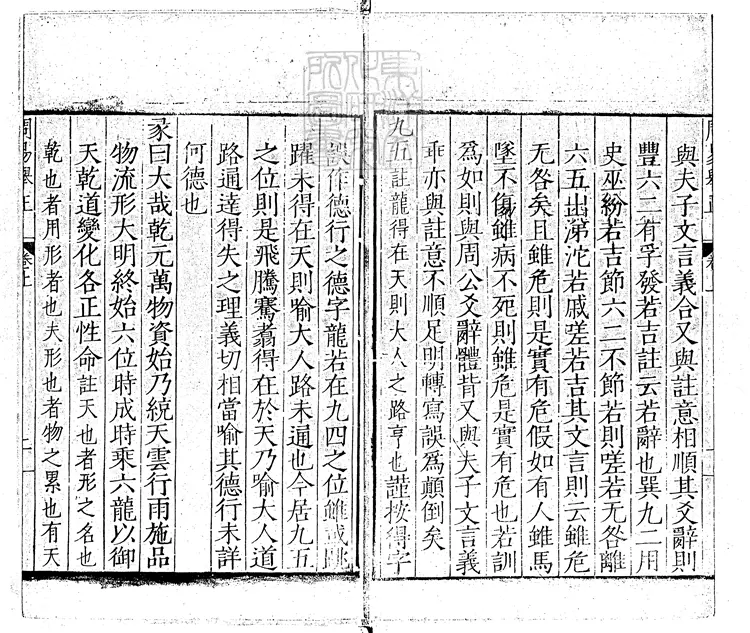 與夫子文言義合又與註意相順其爻辭則
豐六二有孚發若吉註云若辭也巽九二用
史巫紛若吉節六三不節若則嗟若无咎離
六五出涕沱若戚嗟若吉其文言則云雖危
无咎矣且雖危則是實有危假如有人雖馬
墜不傷雖病不死則雖危是實有危也若訓
為如則與周公爻辭體背又與夫子文言義
乖亦與註意不順足明轉寫誤為顛倒矣
九五註龍得在天則大人之路亨也謹按得字
誤作德行之德字龍若在九四之位雖或跳
躍未得在天則喻大人路未通也今居九五
之位則是飛騰騫翥得在於天乃喻大人道
路通達得失之理義切相當喻其德行未詳
何德也
彖曰大哉乾元萬物資始乃統天雲行雨施品
物流形大明終始六位時成時乘六龍以御
天乾道變化各正性命註天也者形之名也
乾也者用形者也夫形也者物之累也有天
周易舉正
卷上
二